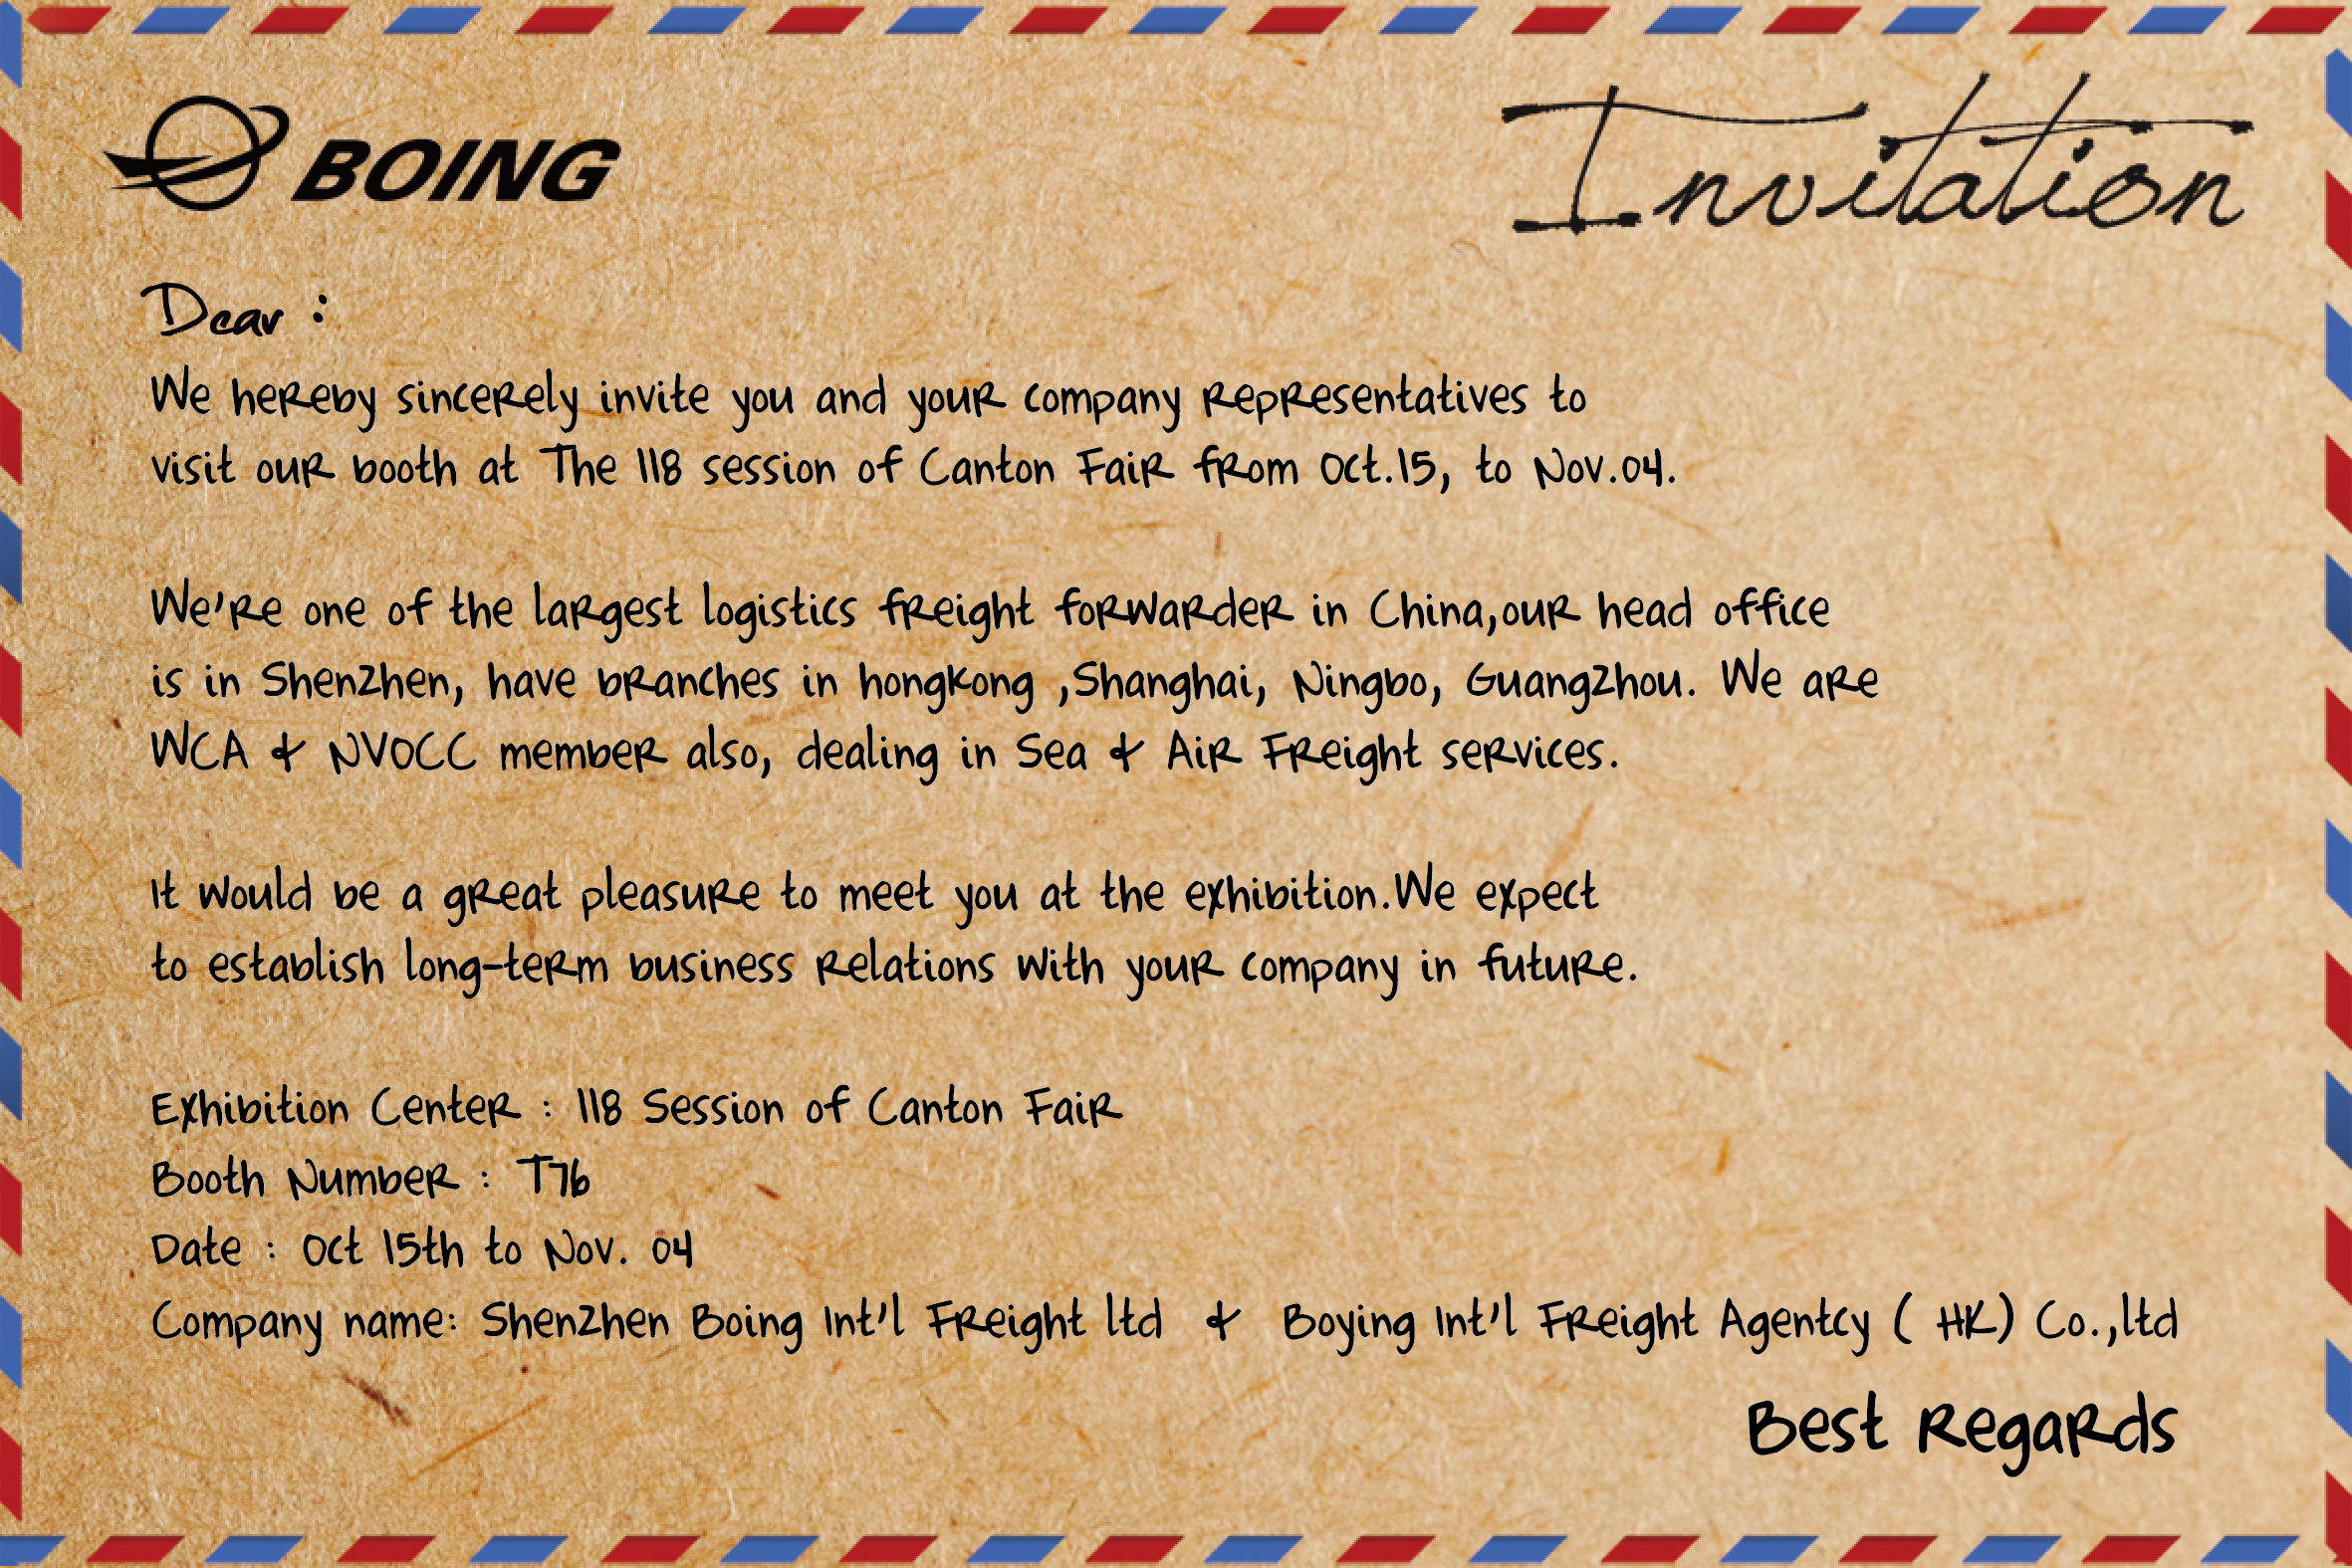 BOING
Invitation
Dear :
We hereby sincerely invite you and your company representatives to
visit our booth at The 118 session of Canton Fair from Oct.15, to Nov.04.
We're one of the largest logistics freight forwarder in China,our head office
is in Shenzhen, have branches in hongkong ,Shanghai, Ningbo, Guangzhou. We are
WCA & NVOCC member also, dealing in Sea & Air Freight services.
It would be a great pleasure to meet you at the exhibition.We expect
to establish long-term business relations with your company in future.
Exhibition Center : 118 Session of Canton Fair
Booth Number : T76
Date : Oct 15th to Nov. 04
Company name: Shenzhen Boing Int'l Freight ltd & Boying Int'l Freight Agentcy ( HK) Co.,ltd
Best Regards